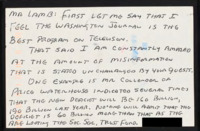 MR LAMB: FIRST LET ME SAY THAT I
FEEL THE WASHINGTON JOURNAL IS THE
BEST PROGRAM ON TELEVISION.
THAT SAID I AM CONSTANTLY AMAZED
AT THE AMOUNT OF MISINFORMATION
THAT IS STATED UNCHALLENGED BY YOUR GUESTS.
ONE EXAMPLE IS MR COLLENDER OF
PRICE WATERHOUSE INDICATED SEVERAL TIMES
THAT THE NEW DEFICIT WILL BE 126 BILLION,
190 BILLION LAST YEAR. ANYONE WHO READ KNOW THAT THE
DEFICIT IS 60 BILLION MORE THAN THAT AS THEY
ARE LEAVING THE SOC SEC, TRUST FUND.